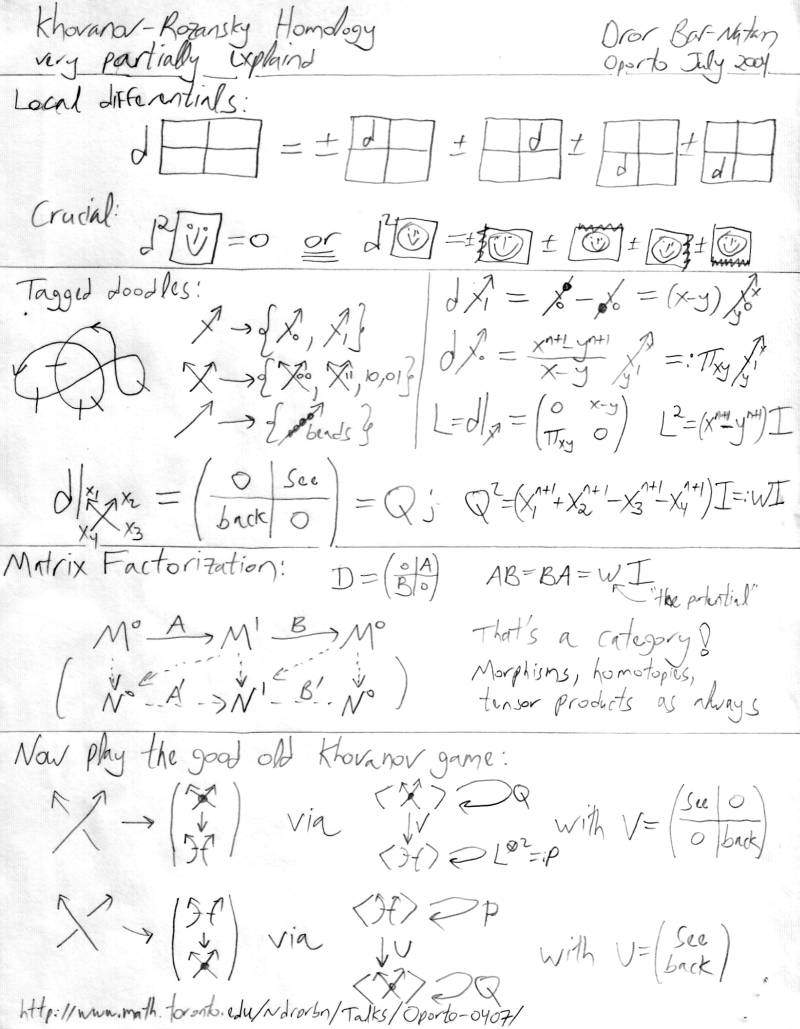 Khovanov-Rozansky Homology
very partially explaind
Dror Bar-Natan
Oporto July 2004
Local differentials:
d = ± d ± d ± d ± d
Crucial:
d² = 0 or d² = ± ± ± ±
Tagged doodles:
→ { 0, 1 }
→ { 00, 11, 10, 01 }
→ { beads }
d 1 = 0 − 0 = (x-y) 0 x y
d 0 = xⁿ⁺¹-yⁿ⁺¹ / x-y 1 x y =: π_xy 1 x y
L = d| = ( 0 x-y
π_xy 0 ) L² = (xⁿ⁺¹-yⁿ⁺¹) I
d| x₁ x₂ x₃ x₄ = ( 0 | see
back | 0 ) = Q; Q² = (x₁ⁿ⁺¹+x₂ⁿ⁺¹-x₃ⁿ⁺¹-x₄ⁿ⁺¹) I =: WI
Matrix Factorization:
D = ( 0 | A
B | 0 ) AB = BA = W I
"the potential"
M⁰ A→ M¹ B→ M⁰
( N⁰ A'→ N¹ B'→ N⁰ )
That's a category!
Morphisms, homotopies,
tensor products as always
Now play the good old Khovanov game:
→ ( ↓ ) via Q
↓ V
L^⊗2 =: P
with V = ( see | 0
0 | back )
→ ( ↓ ) via P
↓ U
Q
with U = ( see
back )
http://www.math.toronto.edu/~drorbn/Talks/Oporto-0407/